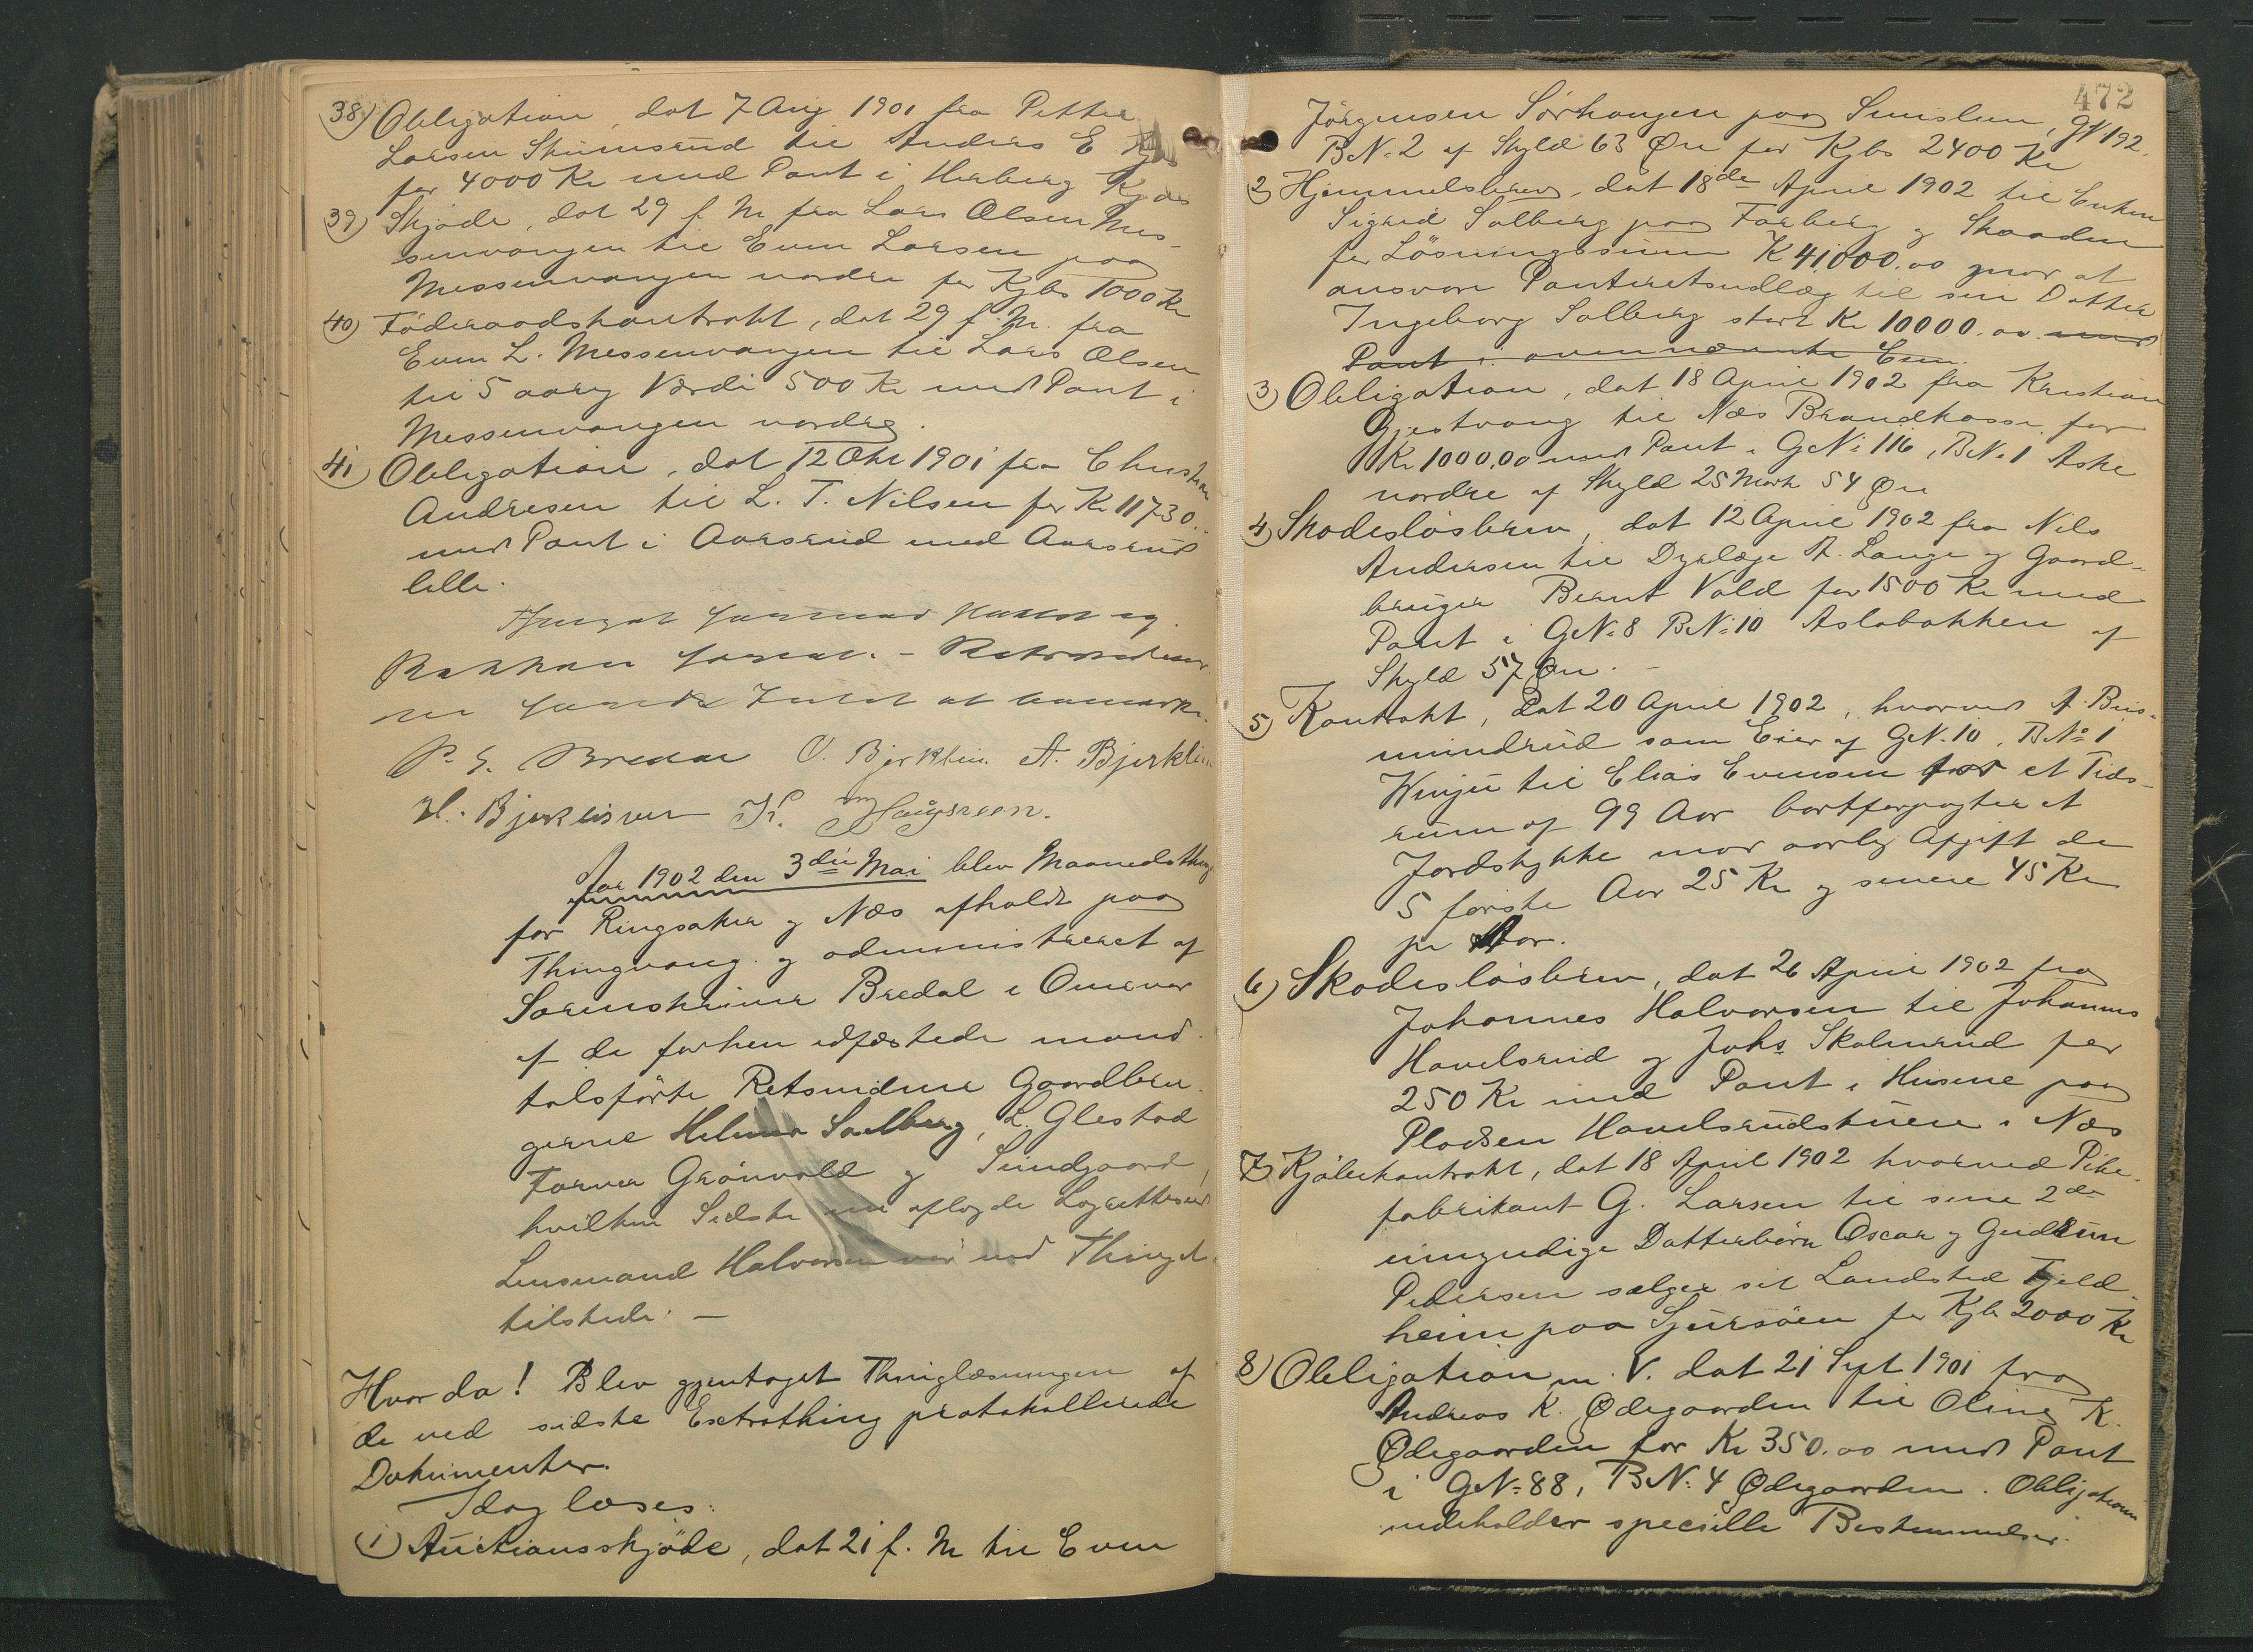 38) Obligation, dat 7 Aug 1901 fra Petter
Larsen Skumsrud til Anders E
for 4000 Kr med Pant i Herberg
39) Skjøde, dat 29 f. M. fra Lars Olsen Mes-
senvangen til Even Larsen paa
Messenvangen nordre for Kjbs 1000 Kr
40) Föderaadskontrakt, dat 29 f. M. fra
Even L. Messenvangen til Lars Olsen
til 5 aarig Værdi 500 Kr med Pant i
Messenvangen nordre.
41) Obligation, dat 12 Okt 1901 fra Christian
Andresen til L. T. Nilsen for Kr 11730.
med Pant i Aarsrud med Aarsrud
lille.
Bredal O. Bjerklin. A. Bjerklin
H. Haugsveen.
Aar 1902 den 3die Mai blev Maanedsthing
for Ringsaker og Næs afholdt paa
Thingvang og administreret af
Sorenskriver Bredal i Overvær
af de forhen edfæstede mand-
talsførte Retsvidner Gaardbru-
gerne Helmer Saelberg, L. Glestad
Torver Grönvold og Sundgaard,
hvilken Sidste aflagde Lagretteseed
Lensmand Halvorsen var ved Thinget
tilstede. –
Hvorda! Blev gjentaget Thinglæsningen af
de ved sidste Extrathing protokollerede
Dokumenter.
Idag læses:
1) Auctionsskjöde, dat 21 f. M til Even
472
Jörgensen Sörhaugen paa GN 192.
BN. 2 af Skyld 63 Øre for Kjbs 2400 Kr
2) Hjemmelsbrev, dat 18de April 1902 til Enken
Sigrid Solberg paa Farberg og Skaaden
for Løsningssum K 41000.00 mod at
ansvare Panteretsudlæg til sin Datter
Ingeborg Solberg stort Kr 10000.00 med
Pant i ovennævnte Eien.
3) Obligation, dat 18 April 1902 fra Kristian
Gjestvang til Næs Brandkasse for
Kr 1000,00 med Pant i GN: 116, BN. 1 Aske
nordre af Skyld 25 Mark 54 Øre
4) Skadeslösbrev, dat 12 April 1902 fra Nils
Andersen til Dyrlæge A. Lange og Gaard-
bruger Bernt Vold for 1500 Kr med
Pant i GN: 8 BN: 10 Aslabakken af
Skyld 57 Øre. –
5) Kontrakt, dat 20 April 1902, hvorved A. Bus-
mundrud som Eier af GN. 10, BN: 1
Winju til Elias Evensen for et Tids-
rum af 99 Aar bortforpagter et
Jordstykke mod aarlig Afgift de
5 förste Aar 25 Kr og senere 45 Kr
pr Aar.
6) Skadeslösbrev, dat 26 April 1902 fra
Johannes Halvorsen til Johannes
Havelsrud og Johs Skolmerud for
250 Kr med Pant i Husene paa
Pladsen Havelsrudstuen i Næs
7) Kjöbekontrakt, dat 18 April 1902 hvorved Pibe-
fabrikant G. Larsen til sine 2de
umyndige Datterbörn Oscar og Gudrun
Pedersen sælger sit Landsted Fjeld-
heim paa Sjursöen for Kjb 2000 Kr
8) Obligation m. V. dat 21 Sept 1901 fra
Andreas K. Ødegaarden til Oline K.
Ødegaarden for Kr 350.00 med Pant
i GN: 88, BN: 4 Ødegaarden. Obligationen
indeholder specielle Bestemmelser.